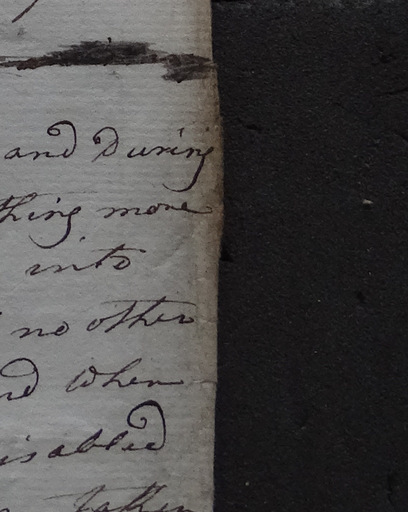 and During
thing more
into
no other
nd when
isabled
taken